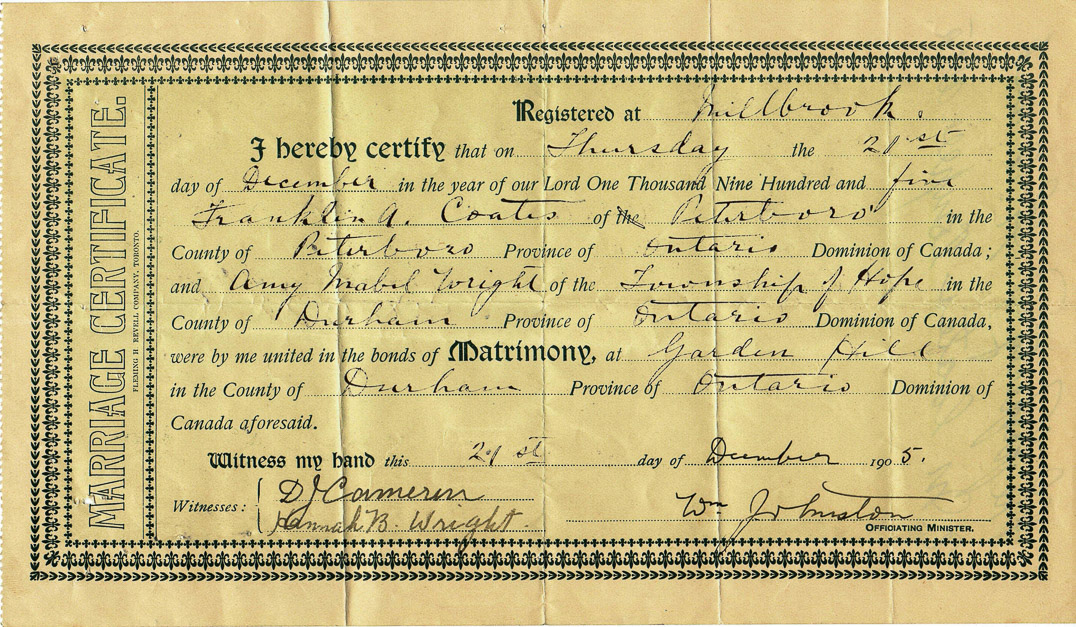 MARRIAGE CERTIFICATE.
FLEMING H REVELL COMPANY, TORONTO.
Registered at Millbrook.
I hereby certify that on Thursday the 21st
day of December in the year of our Lord One Thousand Nine Hundred and five
Franklin A. Coates of the Peterboro' in the
County of Peterboro Province of Ontario Dominion of Canada;
and Amy Mabel Wright of the Township of Hope in the
County of Durham Province of Ontario Dominion of Canada,
were by me united in the bonds of Matrimony, at Garden Hill
in the County of Durham Province of Ontario Dominion of
Canada aforesaid.
Witness my hand this 21st day of December 1905.
Witnesses: D J Cameron
Hannah B. Wright.
Wm Johnston
OFFICIATING MINISTER.